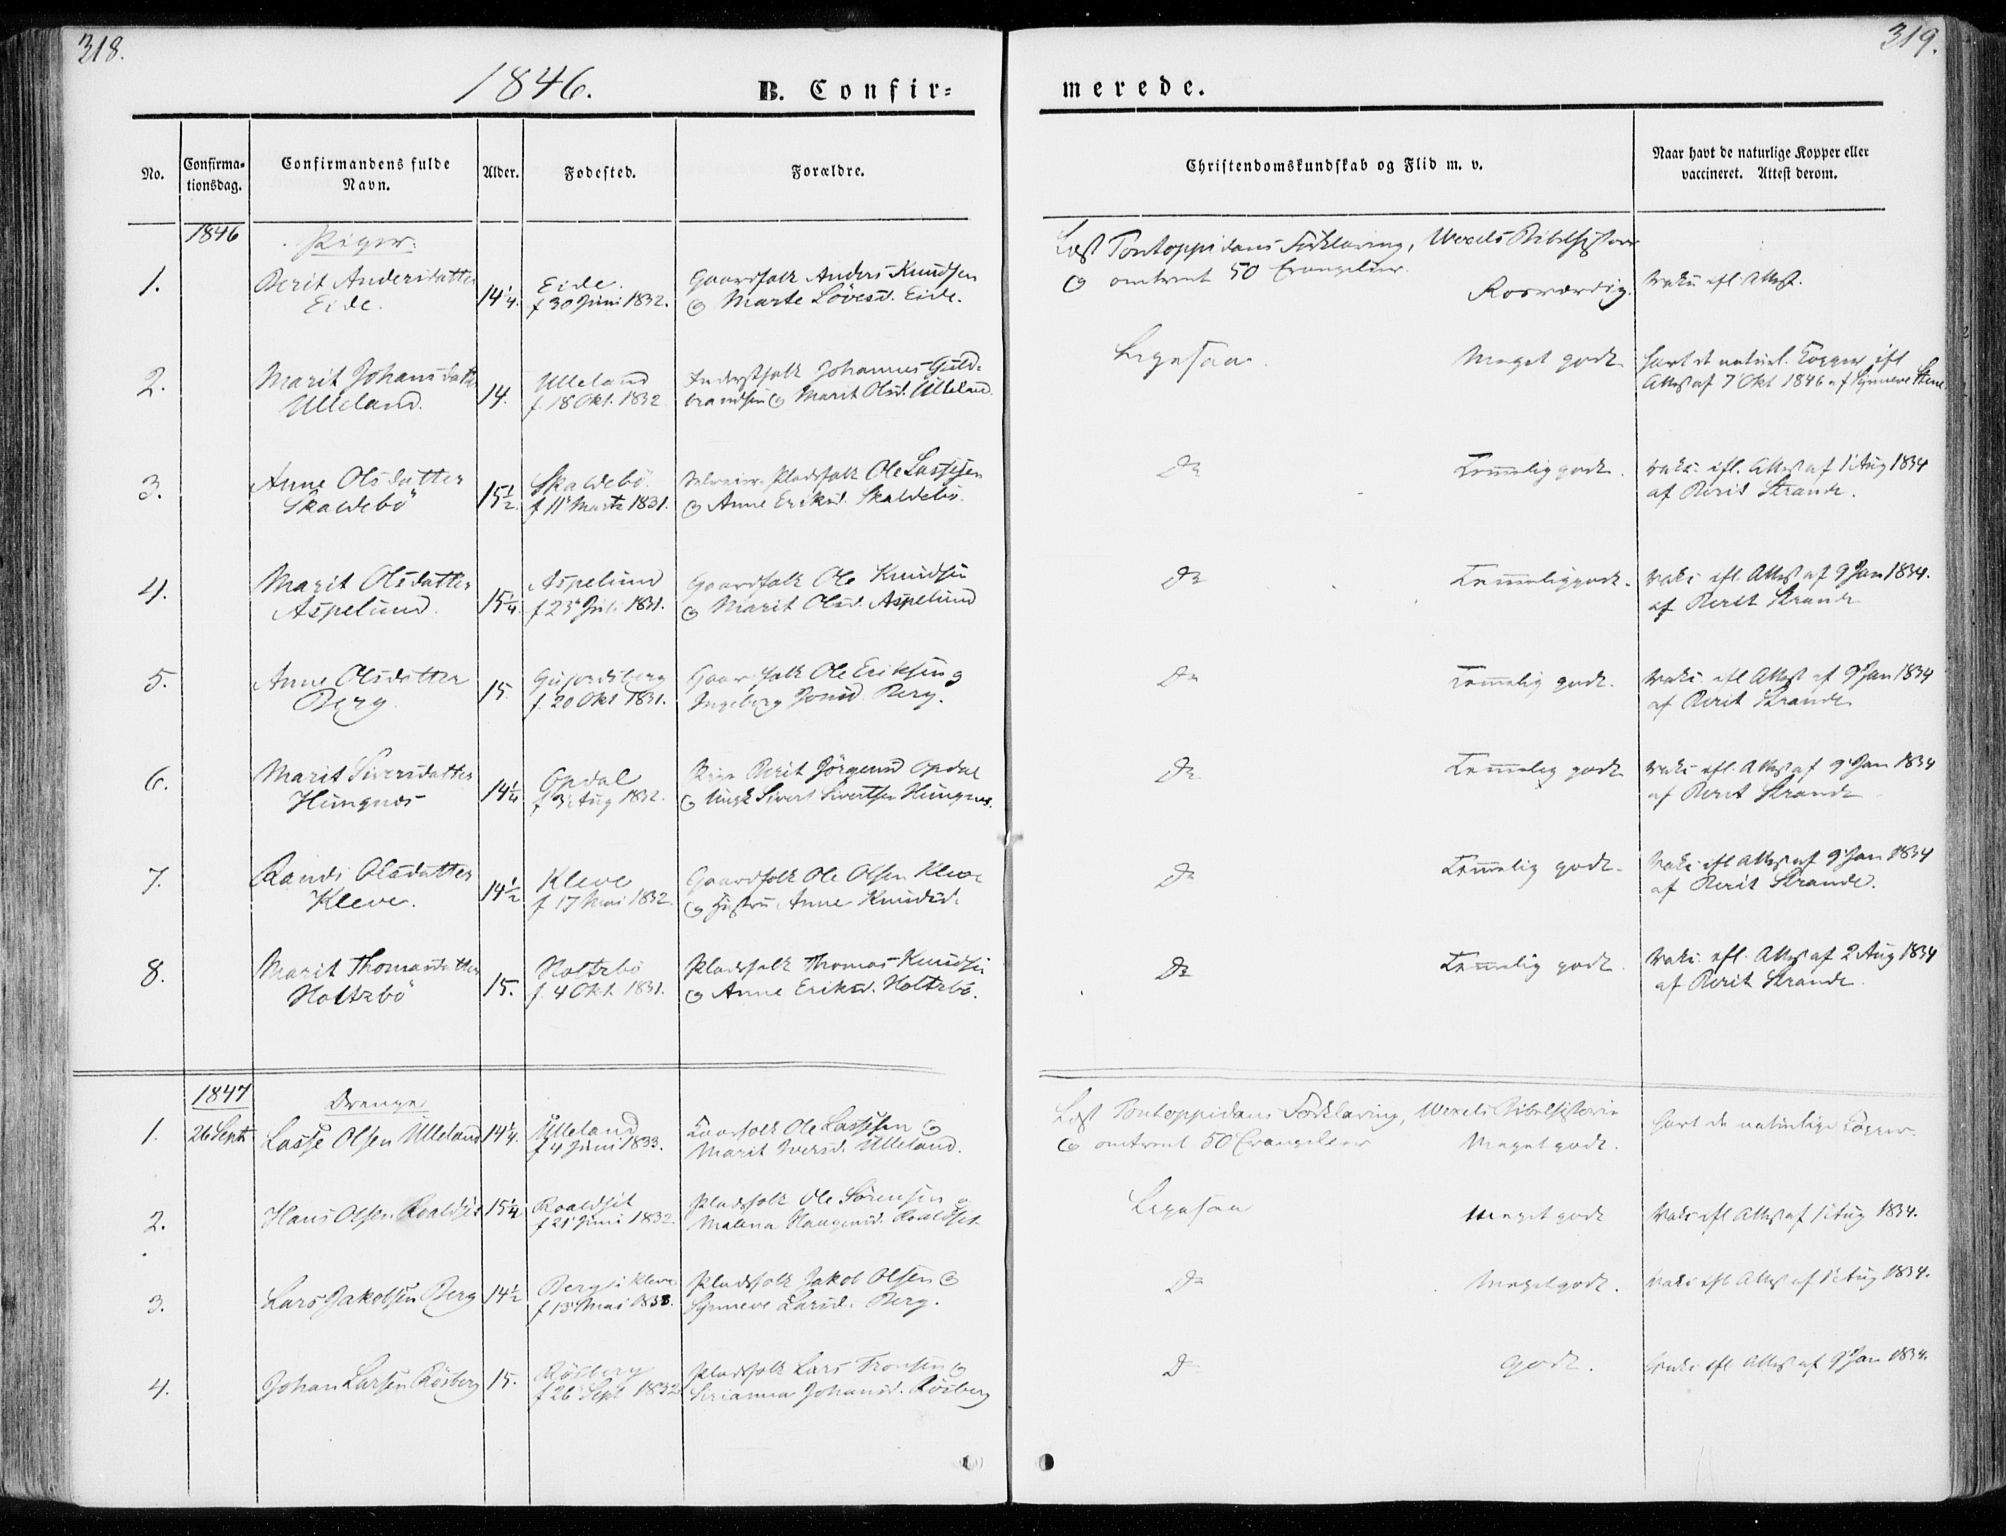 318.
319.
1846.
B. Confir=
merede.
No.
Confirma-
tionsdag.
Confirmandens fulde
Navn.
Alder.
Fødested.
Forældre.
Christendomskundskab og Flid m. v.
Naar havt de naturlige Kopper eller
vaccineret. Attest derom.
1846
Piger:
Læst Pontoppidans Forklaring, Wexels Bibelhistorie
og omtrent 50 Evangelier.
1.
Berit Andersdatter
Eide.
14 1/4.
Eide.
f 30 Juni 1832.
Gaardfolk Anders Knudsen
og Marte Lovesd. Eide.
Rosværdig.
Vakc efl Attest.
2.
Marit Johansdatter
Ulleland.
14.
Ulleland
f. 18 Okt. 1832
Inderstfolk Johannes Guld-
brandsen og Marit Olsd. Ulleland.
Ligesaa.
Meget godt
havt de naturl. Kopper efl
Attest af 7 Okt 1846 af Synneve Stene
3.
Anne Olsdatter
Skaldebö
15 1/2.
Skaldebö.
f 11 Marts 1831.
Pladsfolk Ole Lassesen
og Anne Eriksd. Skaldebö.
Do
Temmelig godt.
vakc. efl. Attest af 1 Aug 1834
af Berit Strande.
4.
Marit Olsdatter
Aspelund.
15 1/4.
Aspelund
f 23 Juli 1831.
Gaardfolk Ole Knudsen
og Marit Olsd. Aspelund
Do
Temmelig godt.
Vakc efl. Attest af 9 Jan 1834.
af Berit Strande
5.
Anne Olsdatter
Berg.
15.
f. 20 Okt 1831.
Gaardfolk Ole Eriksen og
Ingeborg Jonsd. Berg.
Do
Temmelig godt.
Vakc. efl Attest af 9 Jan 1834
af Berit Strande
6.
Marit Siversdatter
Hungnes
14 1/4
Opdal
f 3 Aug 1832.
Pige Berit Jörgensd Opdal
og Ungk Sivert Sivertsen Hungnes.
Do
Temmelig godt
Vakc efl. Attest af 9 Jan 1834
af Berit Strande
7.
Randi Olsdatter
Kleve.
14 1/2
Kleve
f 17 Mai 1832.
Gaardfolk Ole Olsen Kleve
og Hustru Anne Knudsd.
Do
Temmelig godt.
Vakc efl Attest af 9 Jan 1834
af Berit Strande.
8.
Marit Thomasdatter
Holtebö
15.
Holtebö
f. 4 Okt. 1831.
Pladsfolk Thomas Knudsen
og Anne Eriksd. Holtebö.
Do
Temmelig godt.
Vakc. efl. Attest af 2 Aug 1834
af Berit Strande.
1847
Drenge
Læst Pontoppidans Forklaring, Wexels Bibelhistorie
og omtrent 50 Evangelier
1.
26 Sept
Lasse Olsen Ulleland
14 1/4.
Ulleland
f 4 Juni 1833.
Gaardfolk Ole Lassesen og
Marit Iversd. Ulleland.
Meget godt.
havt de naturlige Kopper.
2.
Hans Olsen Roaldset
15 1/4
Roaldset
f 21 Juni 1832
Pladsfolk Ole Sörensen og
Malena Haagensd. Roaldset
Ligesaa
Meget godt
Vakc efl Attest af 1 Aug 1834.
3.
Lars Jakobsen Berg
14 1/2
Berg i Kleve
f 13 Mai 1833.
Pladsfolk Jakob Olsen og
Synneve Larsd. Berg.
Do
Meget godt.
Vakc efl Attest af 1 Aug 1834.
4.
Johan Larsen Rösberg
15.
Rösberg
f 26 Sept 1832
Pladsfolk Lars Tronsen og
Serianna Johansd. Rösberg
Do
Godt.
Vakc efl Attest af 9 Jan 1834.